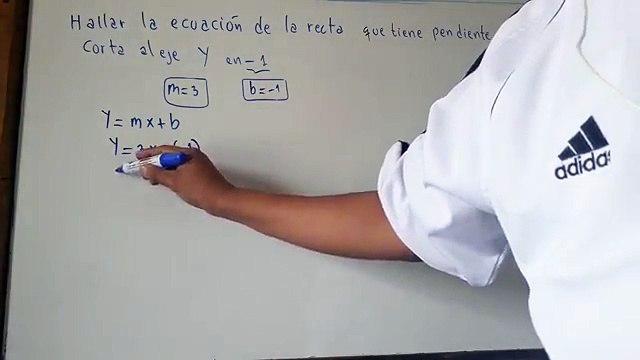 Hallar la ecuación de la recta que tiene pendiente
Corta al eje Y en -1
m=3 b=-1
Y= mx+b
Y=
adidas